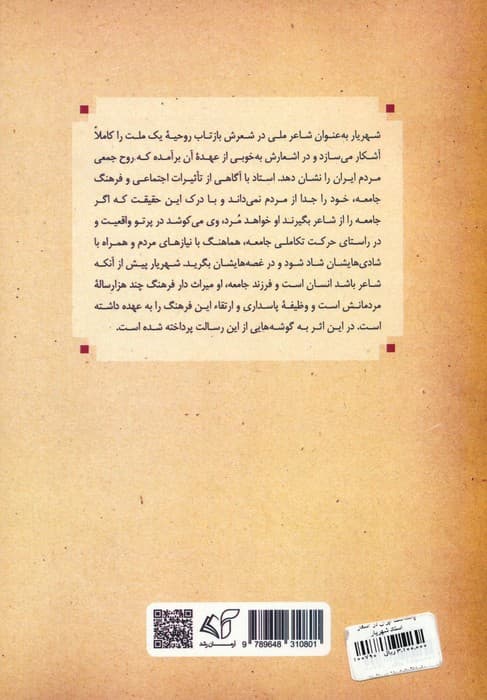 شهریار به‌عنوان شاعر ملی در شعرش بازتاب روحیهٔ یک ملت را کاملاً
آشکار می‌سازد و در اشعارش به‌خوبی از عهدهٔ آن برآمده که روح جمعی
مردم ایران را نشان دهد. استاد با آگاهی از تأثیرات اجتماعی و فرهنگ
جامعه، خود را جدا از مردم نمی‌داند و با درک این حقیقت که اگر
جامعه را از شاعر بگیرند او خواهد مُرد، وی می‌کوشد در پرتو واقعیت و
در راستای حرکت تکاملی جامعه، هماهنگ با نیازهای مردم و همراه با
شادی‌هایشان شاد شود و در غصه‌هایشان بگرید. شهریار پیش از آنکه
شاعر باشد انسان است و فرزند جامعه، او میراث دار فرهنگ چند هزارسالهٔ
مردمانش است و وظیفهٔ پاسداری و ارتقاء این فرهنگ را به عهده داشته
است. در این اثر به گوشه‌هایی از این رسالت پرداخته شده است.
آرمان رشد
9 789648 310801
استاد شهریار
۳,۲۰۰,۰۰۰ ریال